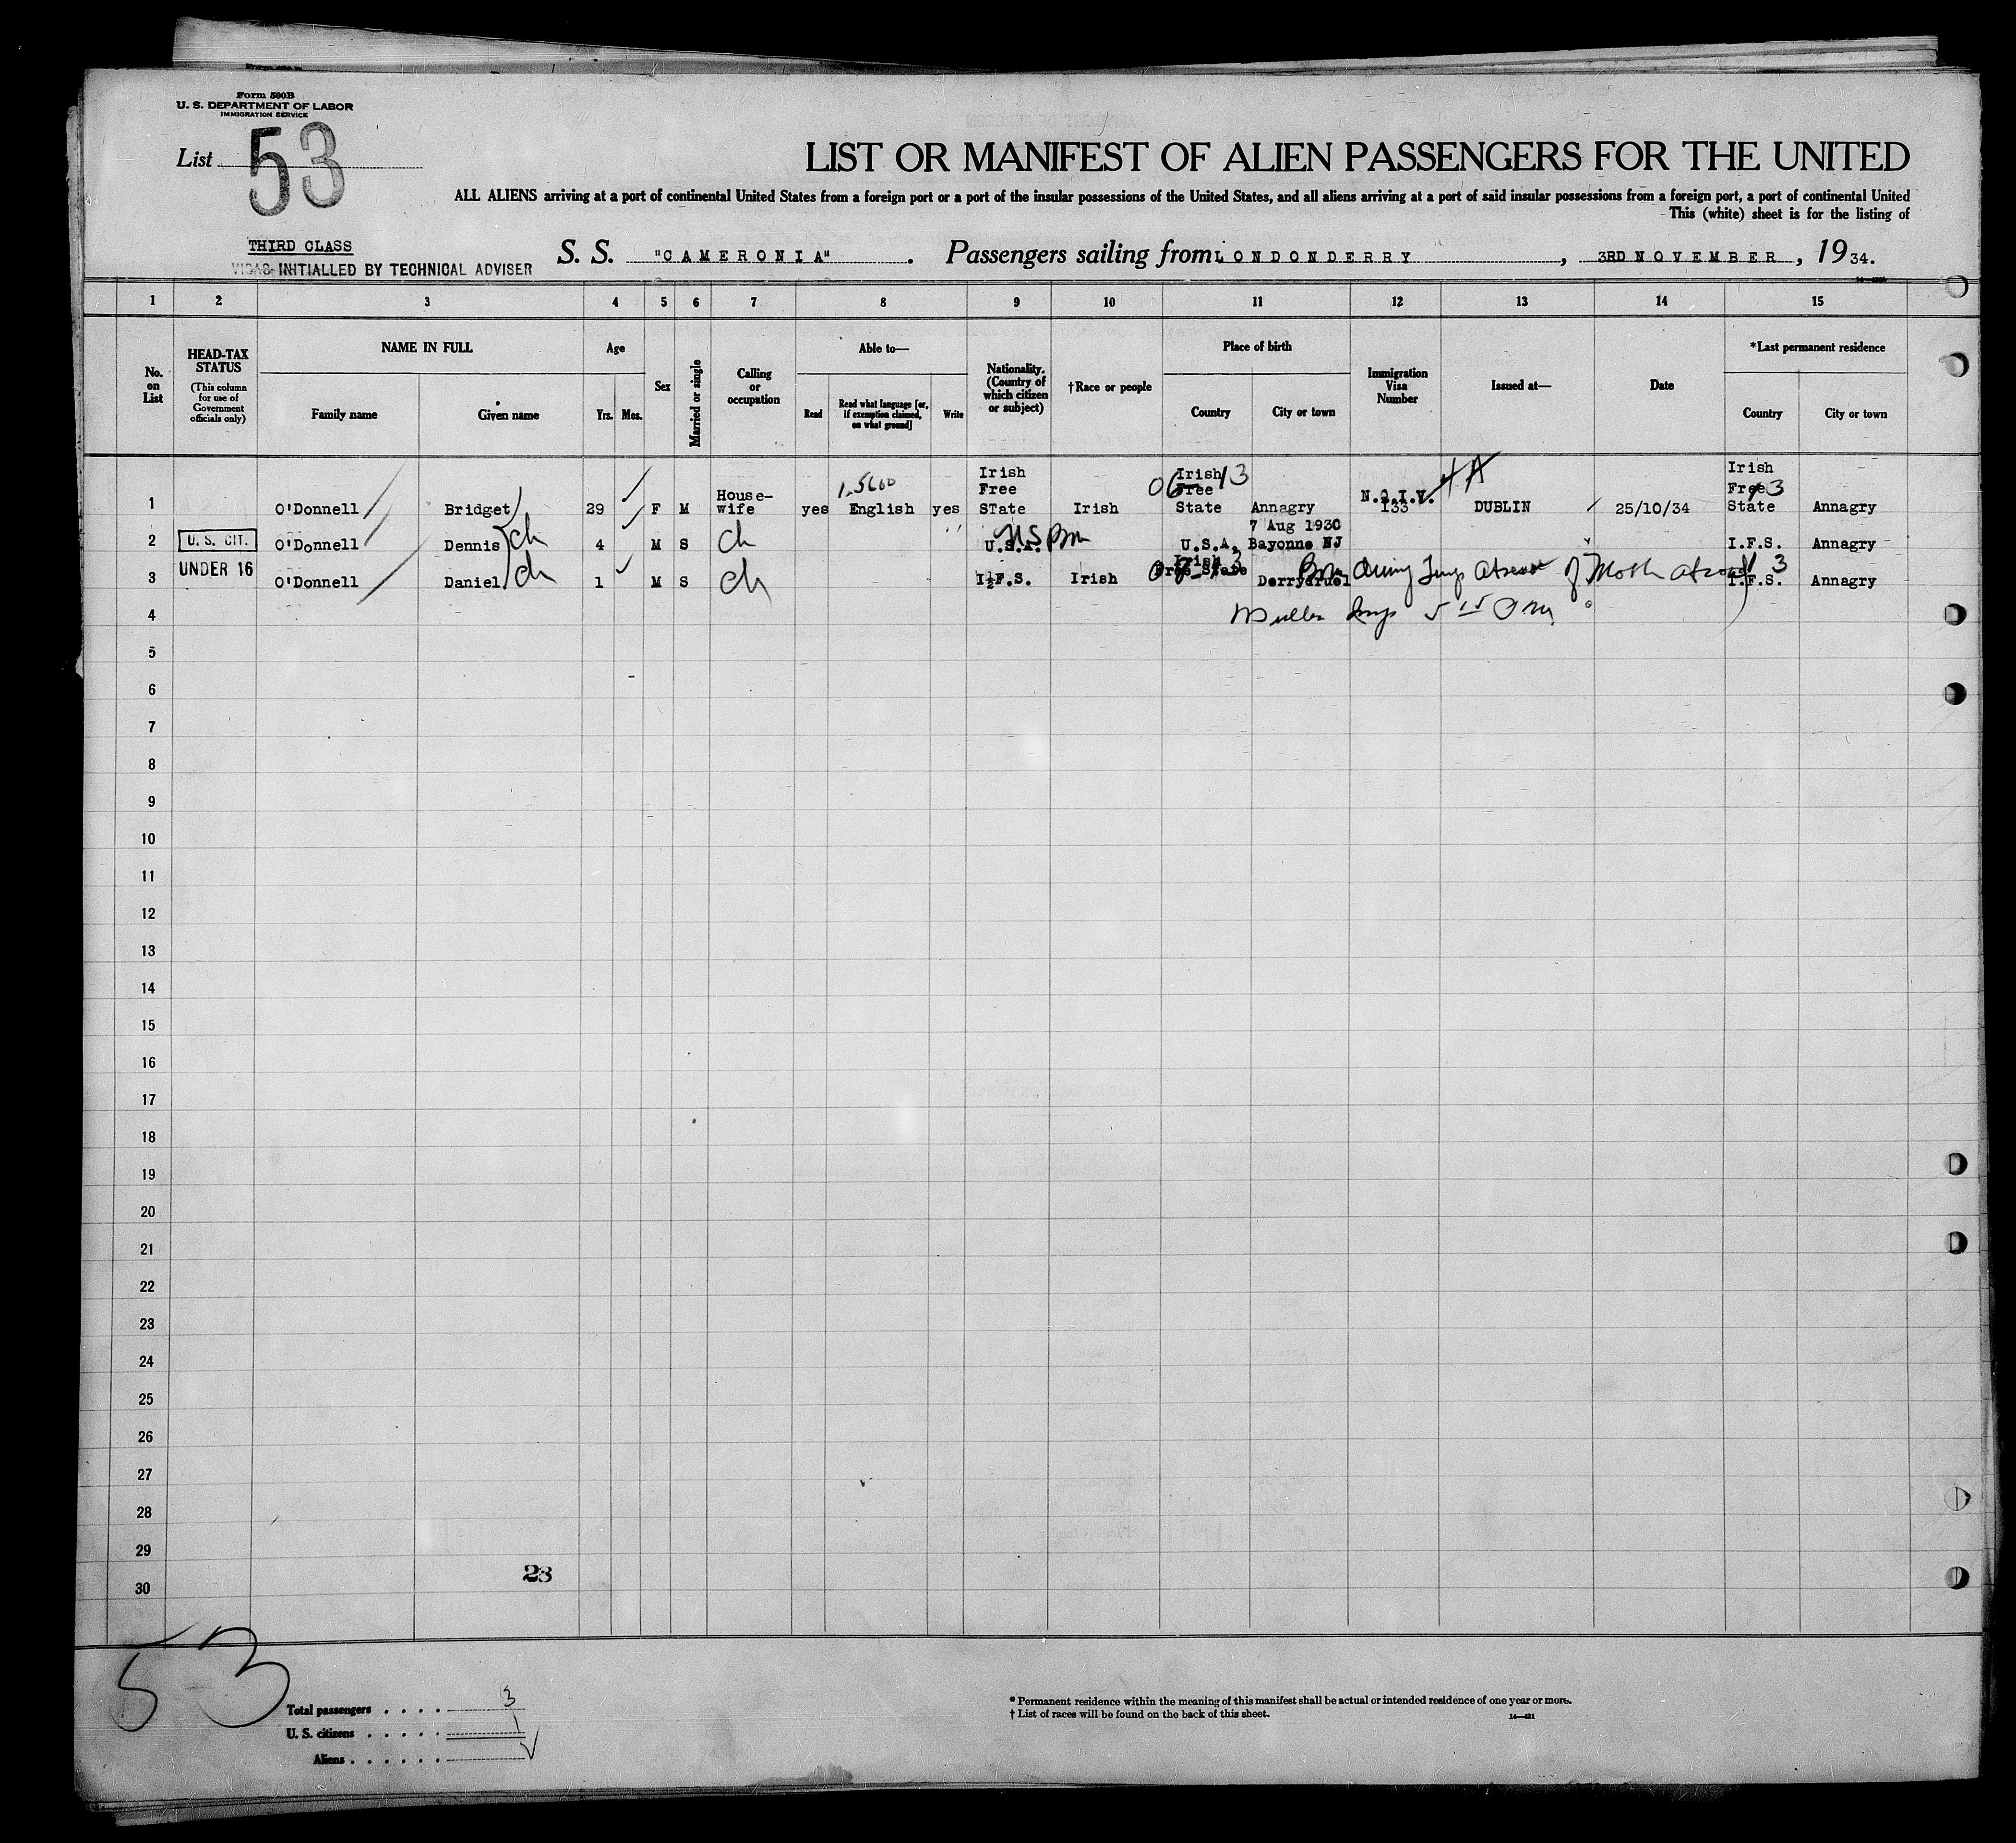 Form 500B
U. S. DEPARTMENT OF LABOR
IMMIGRATION SERVICE
List 53
LIST OR MANIFEST OF ALIEN PASSENGERS FOR THE UNITED
ALL ALIENS arriving at a port of continental United States from a foreign port or a port of the insular possessions of the United States, and all aliens arriving at a port of said insular possessions from a foreign port, a port of continental United
This (white) sheet is for the listing of
THIRD CLASS
VISAS INITIALLED BY TECHNICAL ADVISER
S. S. "CAMERONIA". Passengers sailing from LONDONDERRY, 3RD NOVEMBER, 1934.
1 2 3 4 5 6 7 8 9 10 11 12 13 14 15
No. on List
HEAD-TAX STATUS (This column for use of Government officials only)
NAME IN FULL
Family name Given name
Age
Yrs. Mos.
Sex
Married or single
Calling or occupation
Able to—
Read
Read what language [or, if exemption claimed, on what ground]
Write
Nationality. (Country of which citizen or subject)
†Race or people
Place of birth
Country City or town
Immigration Visa Number
Issued at—
Date
*Last permanent residence
Country City or town
1 O'Donnell Bridget 29 F M House-wife yes English yes Irish Free STate Irish Irish Free State Annagry N.Q.I.V. 133 DUBLIN 25/10/34 Irish Free State Annagry
06 13
4A
3
7 Aug 1930
2 U. S. CIT. O'Donnell Dennis ch 4 M S ch U.S.A. US Born U.S.A. Bayonne NJ I.F.S. Annagry
3 UNDER 16 O'Donnell Daniel ch 1 M S ch I.F.S. Irish Irish Free State Derrydruel Born during Temp Absence of Mother abroad I.F.S. Annagry
3
4
5
6
7
8
9
10
11
12
13
14
15
16
17
18
19
20
21
22
23
24
25
26
27
28
29
30
23
53
Total passengers . . . . 3
U. S. citizens . . . . . 1
Aliens . . . . . .
* Permanent residence within the meaning of this manifest shall be actual or intended residence of one year or more.
† List of races will be found on the back of this sheet.
14—421